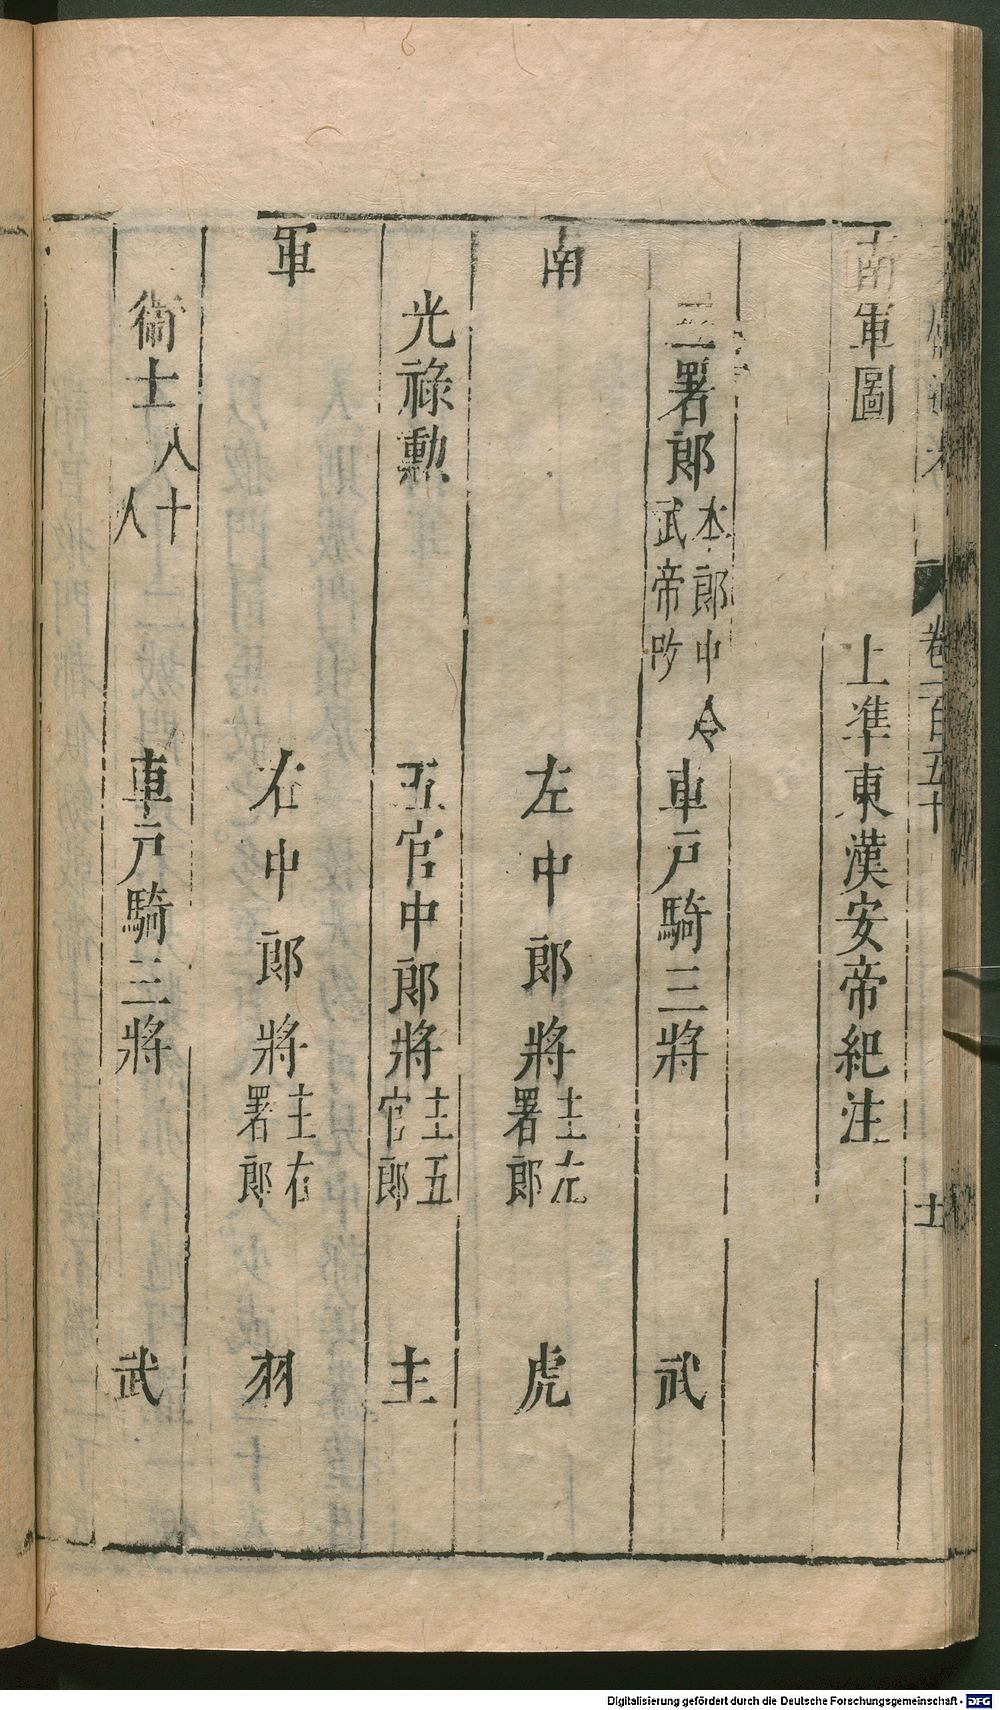 卷一百五十
十
南軍圖 上準東漢安帝紀注
三署郎 本郎中令武帝改 車戶騎三將 武
南 左中郎將 主左署郎 虎
光祿勳 五官中郎將 主五官郎 主
軍 右中郎將 主右署郎 羽
衛士 八十人 車戶騎三將 武
Digitalisierung gefördert durch die Deutsche Forschungsgemeinschaft - DFG